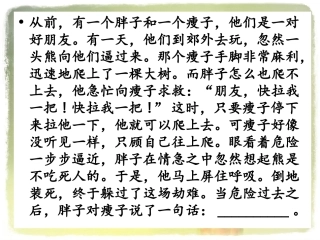 • 从前，有一个胖子和一个瘦子，他们是一对
好朋友。有一天，他们到郊外去玩，忽然一
头熊向他们逼过来。那个瘦子手脚非常麻利，
迅速地爬上了一棵大树。而胖子怎么也爬不
上去，他急忙向瘦子求救：“朋友，快拉我
一把！快拉我一把！” 这时，只要瘦子停下
来拉他一下，他就可以爬上去。可瘦子好像
没听见一样，只顾自己往上爬。眼看着危险
一步步逼近，胖子在情急之中忽然想起熊是
不吃死人的。于是，他马上屏住呼吸。倒地
装死，终于躲过了这场劫难。当危险过去之
后，胖子对瘦子说了一句话： ________ 。